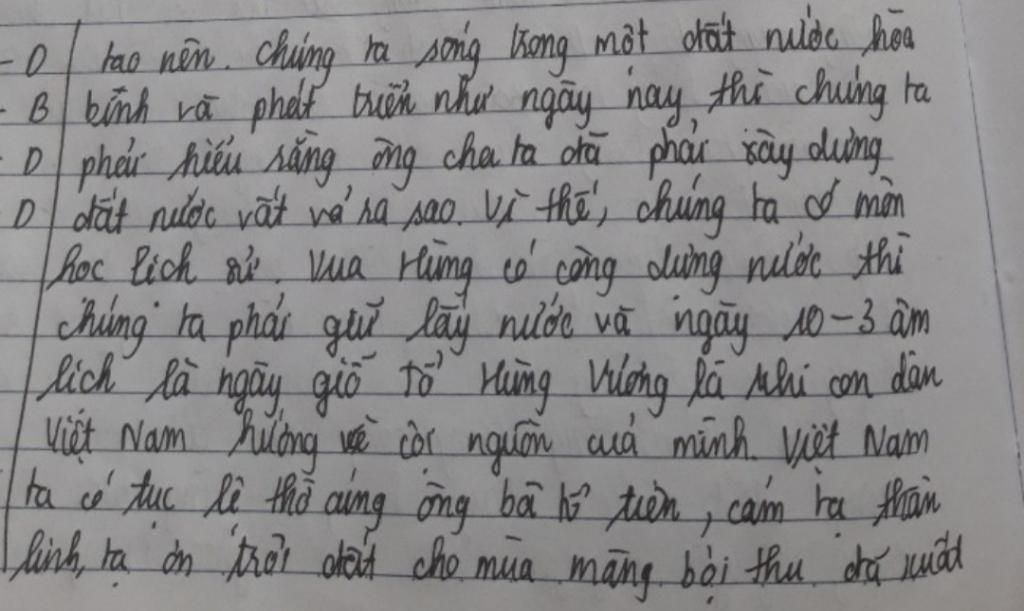 - D tao nên. Chúng ta sống trong một đất nước hòa
- B bình và phát triển như ngày nay thì chúng ta
- D phải hiểu rằng ông cha ta đã phải xây dựng
D đất nước vất vả ra sao. Vì thế, chúng ta có môn
học lịch sử. Vua Hùng có công dựng nước thì
chúng ta phải giữ lấy nước và ngày 10-3 âm
lịch là ngày giỗ tổ Hùng Vương là khi con dân
Việt Nam hướng về cội nguồn của mình. Việt Nam
ta có tục lệ thờ cúng ông bà tổ tiên, cảm tạ thần
linh, tạ ơn trời đất cho mùa màng bội thu đã xuất